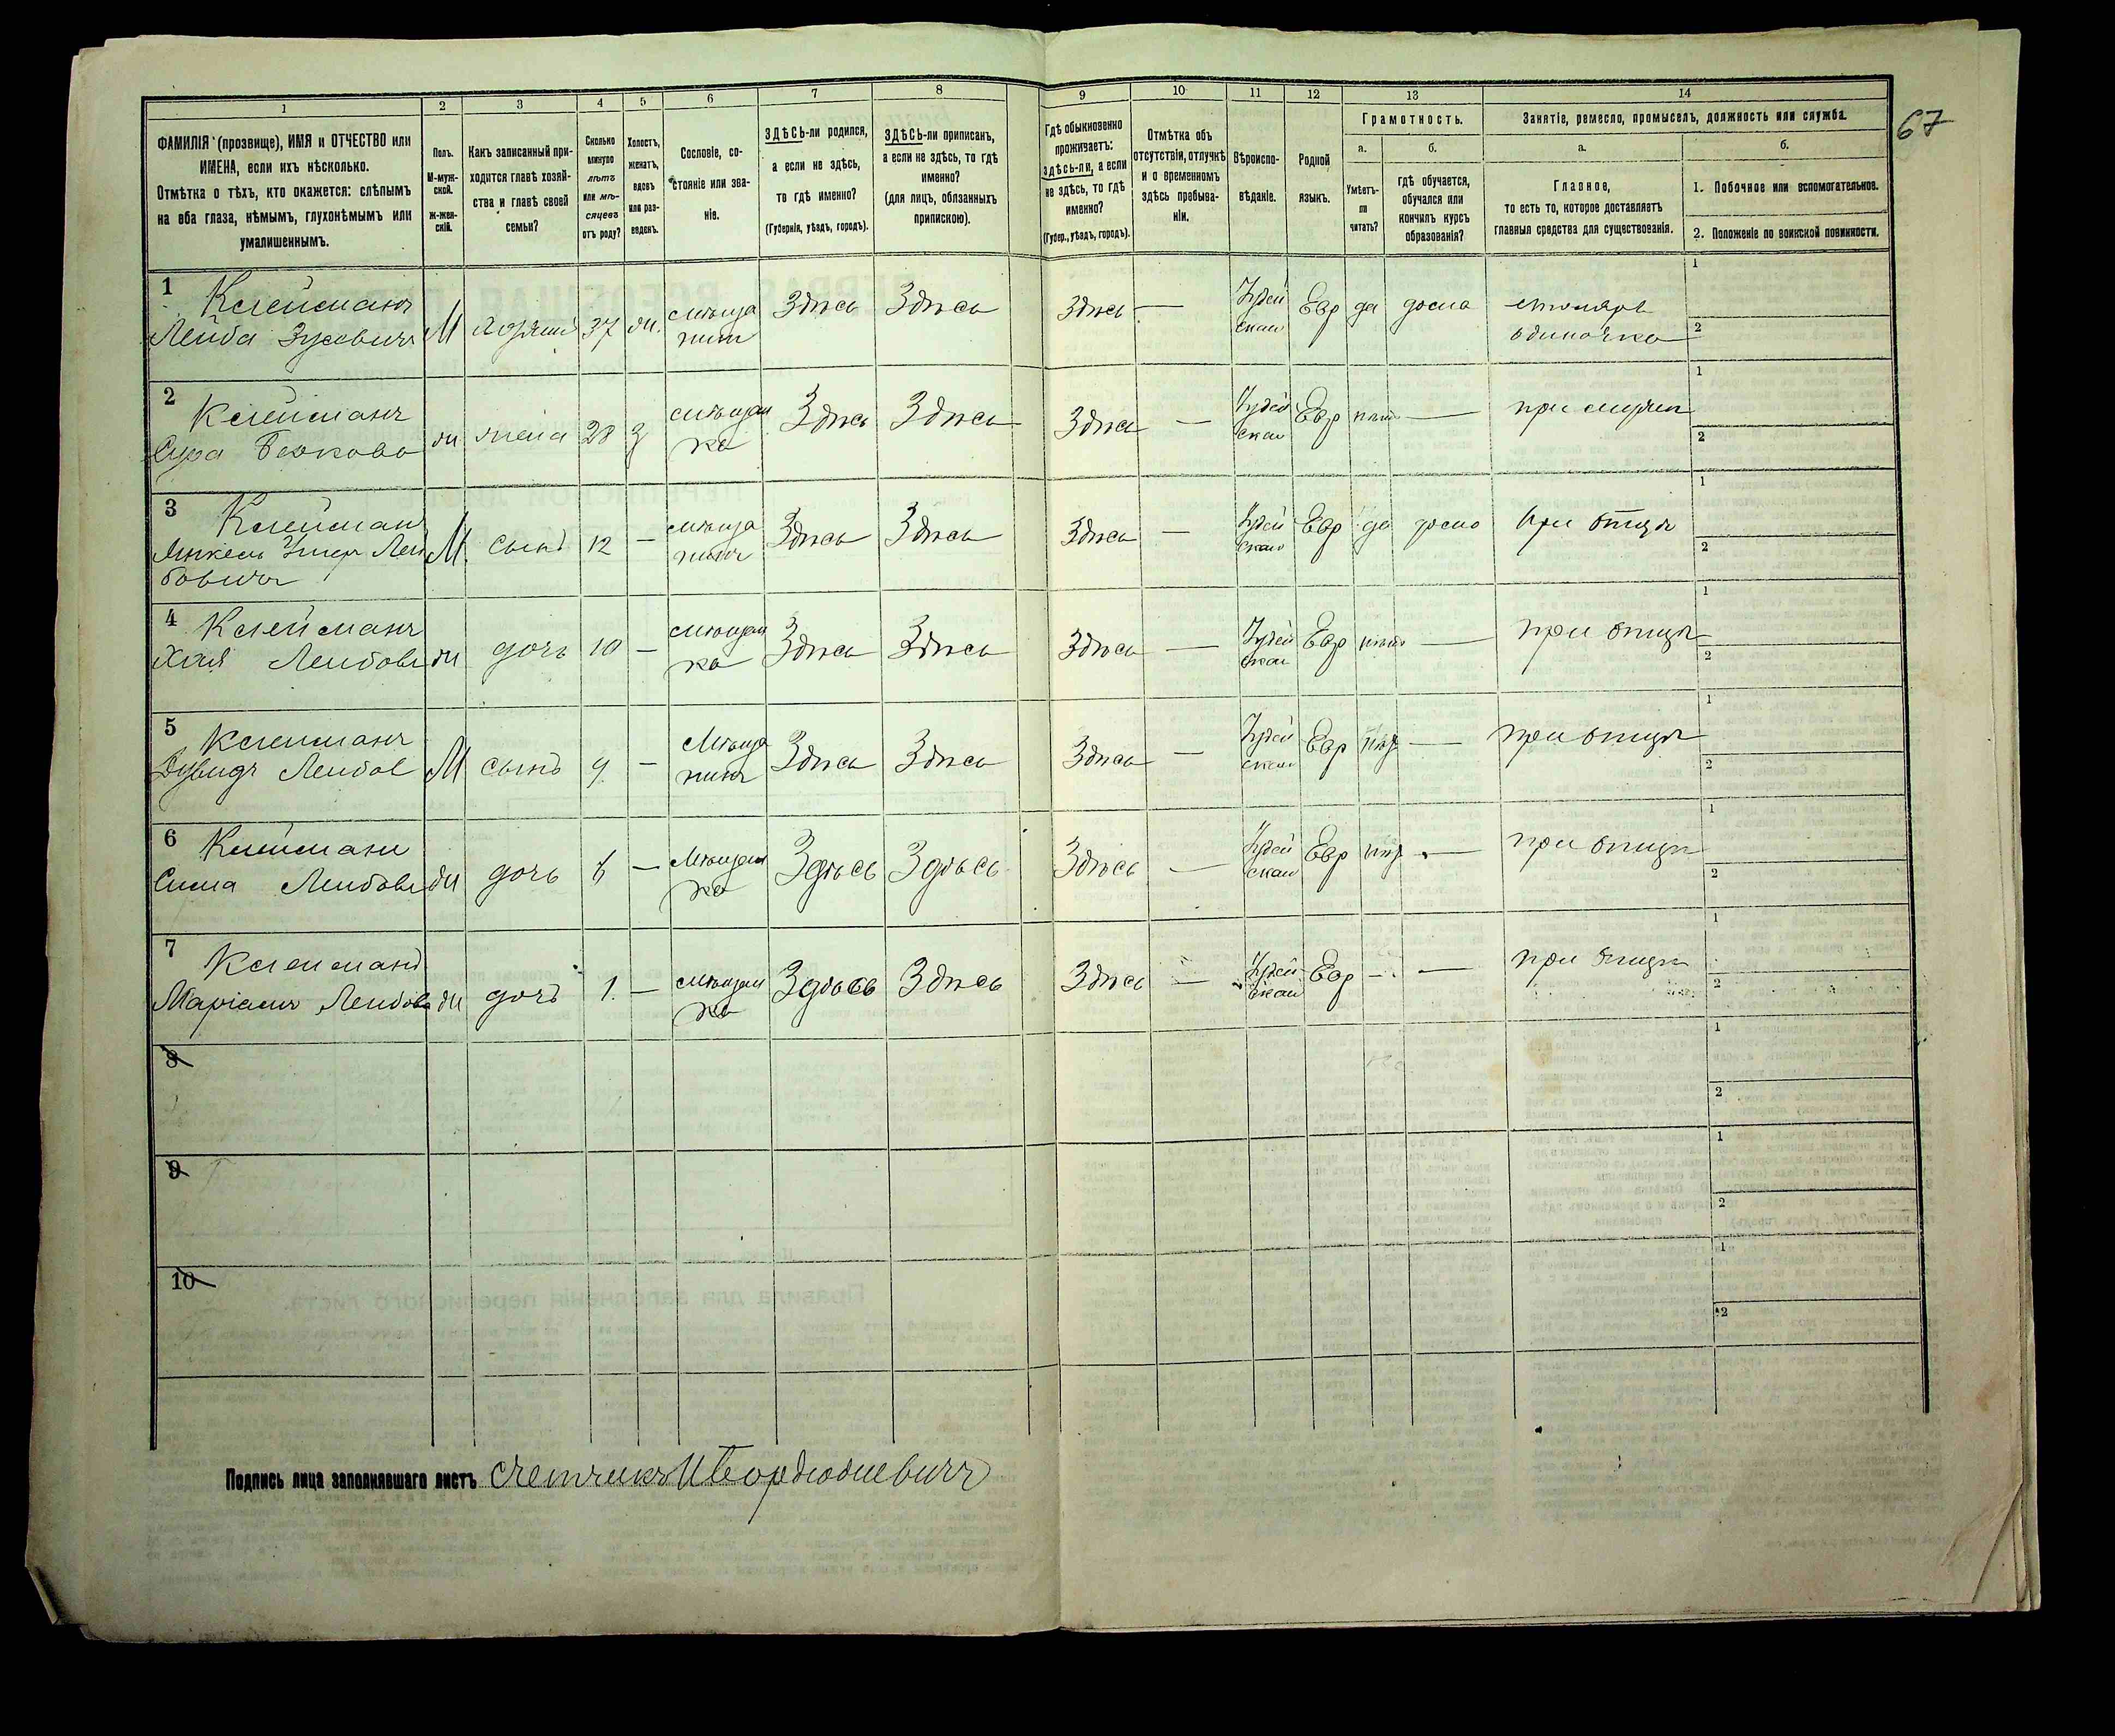 67
1 2 3 4 5 6 7 8 9 10 11 12 13 14
ФАМИЛІЯ (прозвище), ИМЯ и ОТЧЕСТВО или
ИМЕНА, если ихъ нѣсколько.
Отмѣтка о тѣхъ, кто окажется: слѣпымъ
на оба глаза, нѣмымъ, глухонѣмымъ или
умалишеннымъ.
Полъ.
М-муж-
ской.
ж-жен-
скій.
Какъ записанный при-
ходится главѣ хозяй-
ства и главѣ своей
семьи?
Сколько
минуло
лѣтъ
или мѣ-
сяцевъ
отъ роду?
Холостъ,
женатъ,
вдовъ
или раз-
веденъ.
Сословіе, со-
стояніе или зва-
ніе.
ЗДѢСЬ-ли родился,
а если не здѣсь,
то гдѣ именно?
(Губернія, уѣздъ, городъ).
ЗДѢСЬ-ли приписанъ,
а если не здѣсь, то гдѣ
именно?
(для лицъ, обязанныхъ
припискою).
Гдѣ обыкновенно
проживаетъ:
здѣсь-ли, а если
не здѣсь, то гдѣ
именно?
(Губер., уѣздъ, городъ).
Отмѣтка объ
отсутствіи, отлучкѣ
и о временномъ
здѣсь пребыва-
ніи.
Вѣроиспо-
вѣданіе.
Родной
языкъ.
Грамотность.
а.
Умѣетъ-
ли
читать?
б.
гдѣ обучается,
обучался или
кончилъ курсъ
образованія?
Занятіе, ремесло, промыселъ, должность или служба.
а.
Главное,
то есть то, которое доставляетъ
главныя средства для существованія.
б.
1. Побочное или вспомогательное.
2. Положеніе по воинской повинности.
1 Клейманъ
Лейба Зусевичъ М 37 ж. мѣща
нинъ Здѣсь Здѣсь Здѣсь — Іудей
ская Евр да дома столяръ
одиночка 1 2
2 Клейманъ
Сура Беркова ж жена 28 З мѣщан
ка Здѣсь Здѣсь Здѣсь — Іудей
ская Евр нѣтъ — при мужѣ 1 2
3 Клейманъ
Янкель Лей
бовичъ М. сынъ 12 — мѣща
нинъ Здѣсь Здѣсь Здѣсь — Іудей
ская Евр да дома при отцѣ 1 2
4 Клейманъ
Хая Лейбова ж дочь 10 — мѣщан
ка Здѣсь Здѣсь Здѣсь — Іудей
ская Евр нѣтъ — при отцѣ 1 2
5 Клейманъ
Дувидъ Лейбов М сынъ 9 — Мѣща
нинъ Здѣсь Здѣсь Здѣсь — Іудей
ская Евр — при отцѣ 1 2
6 Клейман
Сима Лейбова ж дочь 6 — Мѣщан
ка Здѣсь Здѣсь Здѣсь — Іудей
ская Евр — при отцѣ 1 2
7 Клейманъ
Маріамъ Лейбова ж дочь 1. — мѣщан
ка Здѣсь Здѣсь Здѣсь — Іудей
ская Евр — — при отцѣ 1 2
8 1 2
9 1 2
10 1 2
Подпись лица заполнявшаго листъ счетчикъ